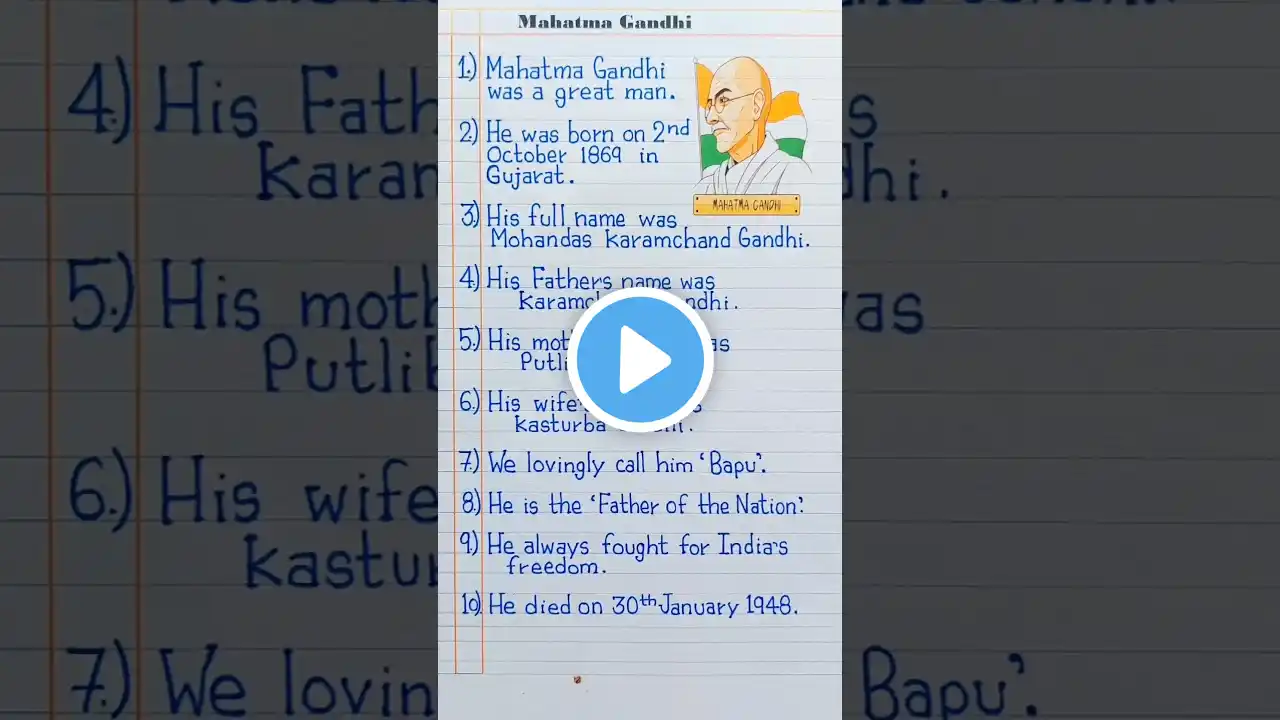 Mahatma Gandhi
1.) Mahatma Gandhi
was a great man.
2.) He was born on 2nd
October 1869 in
Gujarat.
MAHATMA GANDHI
3.) His full name was
Mohandas Karamchand Gandhi.
4.) His Fathers name was
5.) His
6.) His
kasturba
7.) We lovingly call him ‘Bapu’.
8.) He is the ‘Father of the Nation’.
9.) He always fought for India's
freedom.
10.) He died on 30th January 1948.